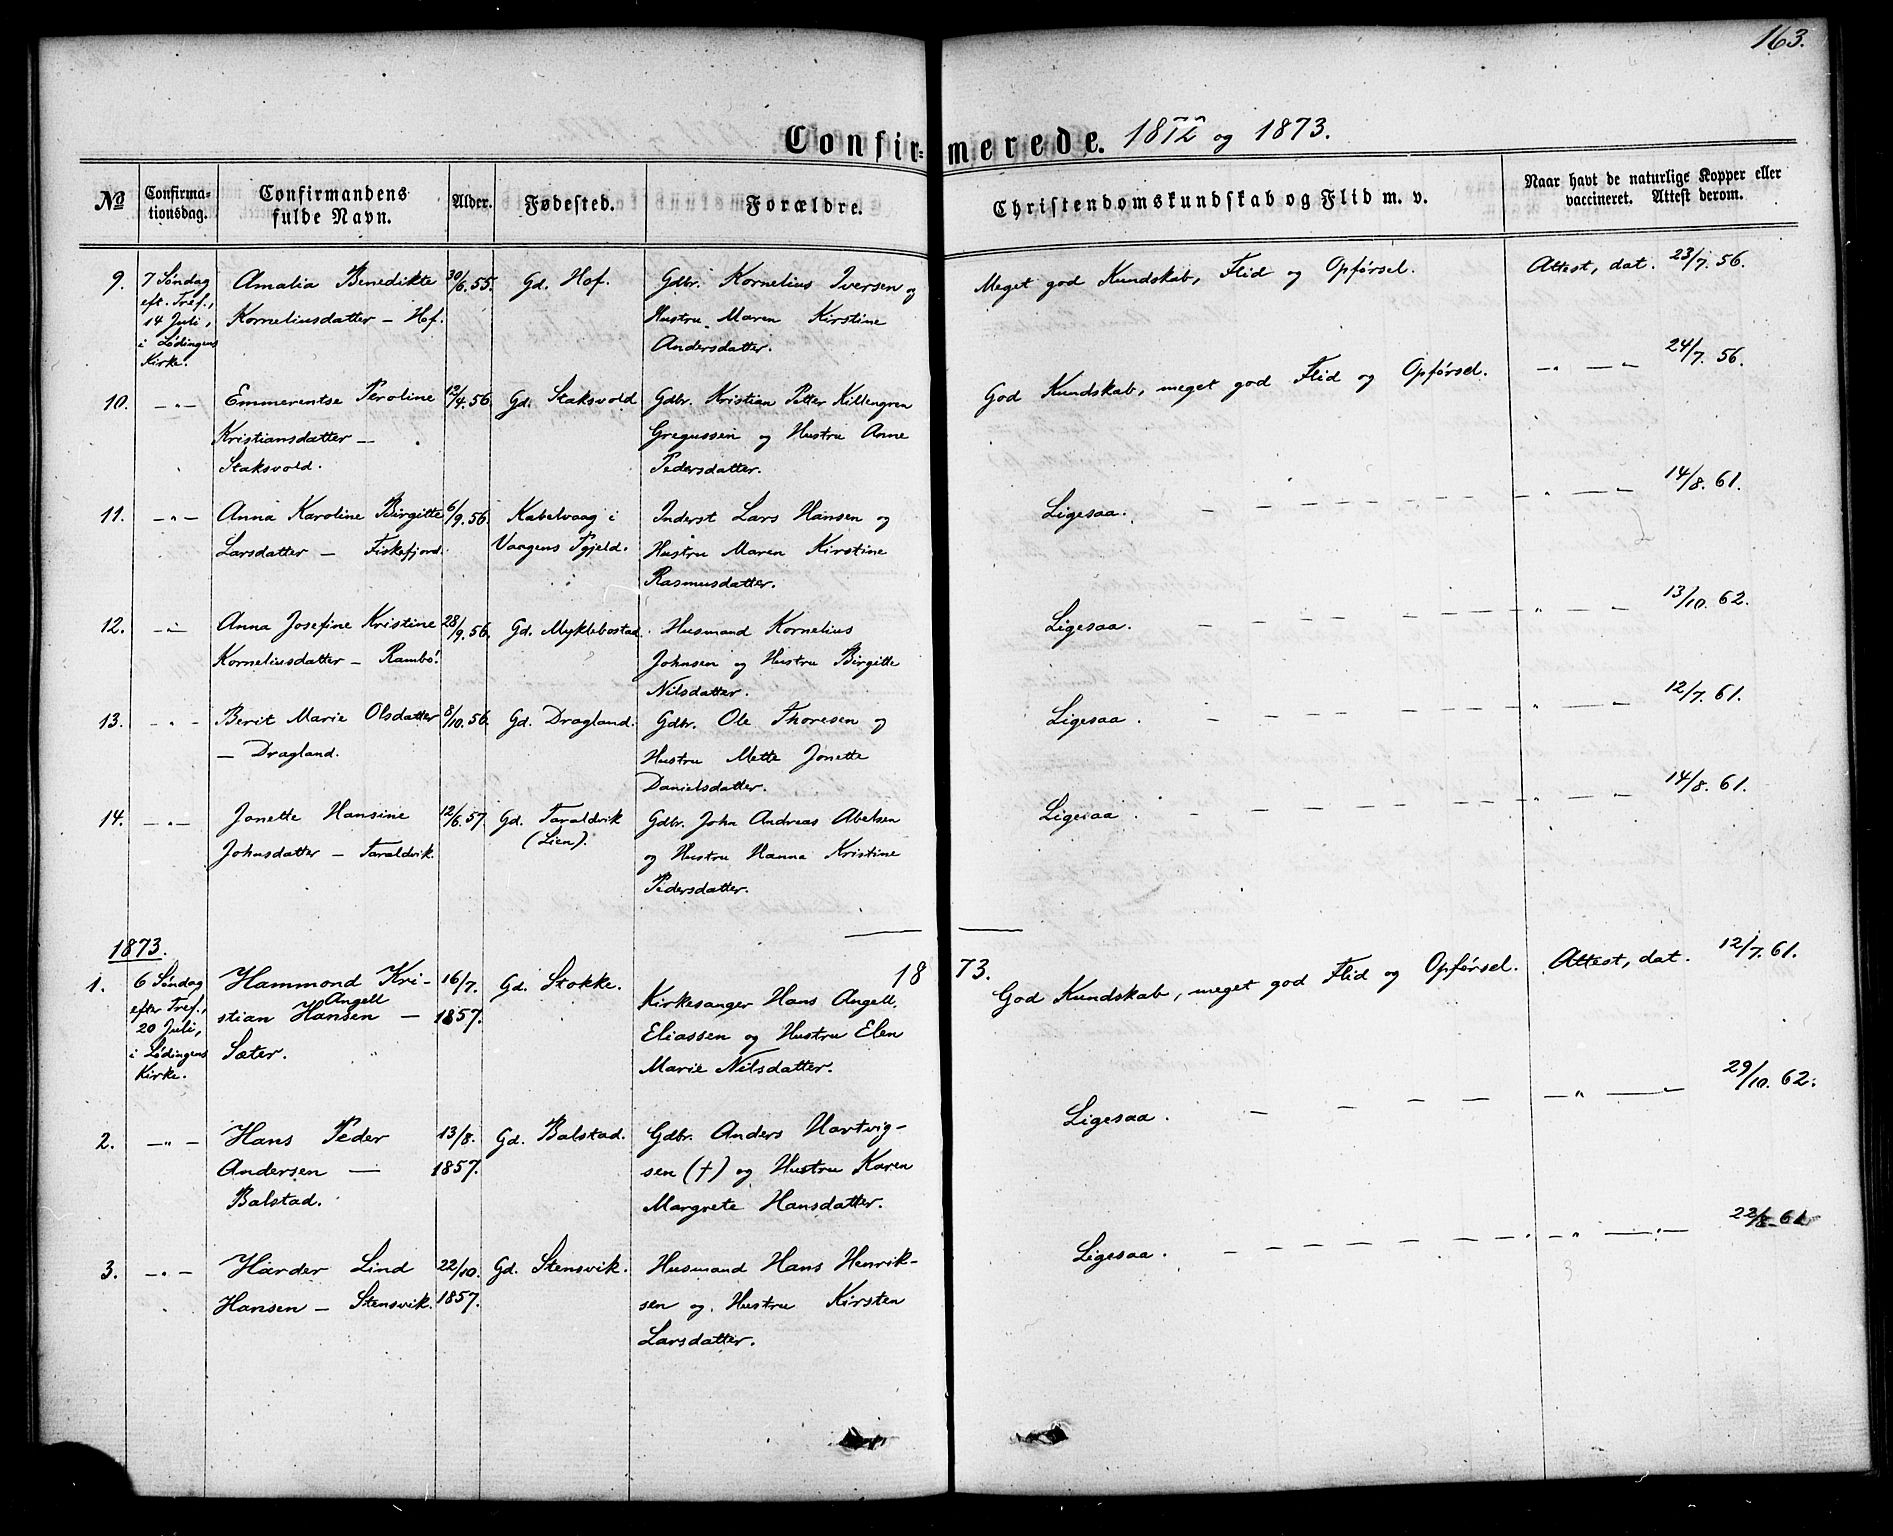 163.
Confirmerede. 1872 og 1873.
No
Confirma-
tionsdag.
Confirmandens
fulde Navn.
Alder.
Fødested.
Forældre.
Christendomskundskab og Flid m. v.
Naar havt de naturlige Kopper eller
vaccineret. Attest derom.
9.
7 Søndag
eft. Tref.,
14 Juli,
i Lødingens
Kirke.
Amalia Benedikte
Korneliusdatter — Hof.
30/6. 55.
Gd. Hof.
Gdbr. Kornelius Iversen og
Hustru Maren Kirstine
Andersdatter.
Meget god Kundskab, Flid og Opførsel.
Attest, dat. 23/7. 56.
10.
— " —
Emmerentse Peroline
Kristiansdatter —
Staksvold.
12/4. 56.
Gd. Staksvold
Gdbr. Kristian Petter Killengren
Gregussen og Hustru Anne
Pedersdatter.
God Kundskab, meget god Flid og Opførsel.
— " — " 24/7. 56.
11.
— " —
Anna Karoline Birgitte
Larsdatter — Fiskefjord.
6/9. 56.
Kabelvaag i
Vaagens Pgjeld.
Inderst Lars Hansen og
Hustru Maren Kirstine
Rasmusdatter.
Ligesaa. — — — — — — " — 14/8. 61.
12.
— " —
Anna Josefine Kristine
Korneliusdatter — Rambö.
28/9. 56.
Gd. Myklebostad.
Husmand Kornelius
Johnsen og Hustru Birgitte
Nilsdatter.
Ligesaa. — — — — — — " — 13/10. 62.
13.
— " —
Berit Marie Olsdatter
— Dragland.
8/10. 56.
Gd. Dragland.
Gdbr. Ole Thoresen og
Hustru Mette Jonette
Danielsdatter.
Ligesaa. — — — — — — " — 12/7. 61.
14.
— " —
Jonette Hansine
Johnsdatter — Taraldvik.
12/6. 57.
Gd. Taraldvik
(Lien).
Gdbr. John Andreas Abelsen
og Hustru Hanna Kristine
Pedersdatter.
Ligesaa. — — — — — — " — 14/8. 61.
1873.
1873.
1.
6 Søndag
efter Tref.,
20 Juli,
i Lødingens
Kirke.
Hammond Kri-
Angell
stian Hansen —
Sæter.
16/7.
1857.
Gd. Stokke.
Kirkesanger Hans Angell
Eliassen og Hustru Elen
Marie Nilsdatter.
God Kundskab, meget god Flid og Opførsel.
Attest, dat. 12/7. 61.
2.
— " —
Hans Peder
Andersen —
Balstad.
13/8.
1857.
Gd. Balstad.
Gdbr. Anders Hartvig-
sen (†) og Hustru Karen
Margrete Hansdatter.
Ligesaa. — — — — — — " — 29/10. 62.
3.
— " —
Harder Lind
Hansen — Stensvik.
22/10.
1857.
Gd. Stensvik.
Husmand Hans Henrik-
sen og Hustru Kirsten
Larsdatter.
Ligesaa. — — — — — — " — 22/8. 61.